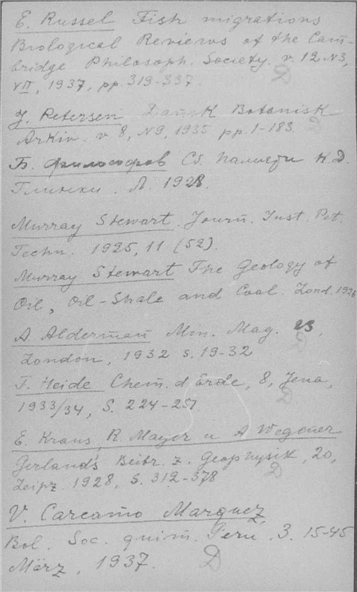 E. Russel Fish migrations
Biological Reviews of the Cam-
bridge Philosoph. Society. v. 12, N3,
VII, 1937, pp 319-337.
D
J. Petersen Dansk Botanisk
Arkiv. v 8, N9, 1935 pp. 1-183.
D
Б. Философов Сб. Памяти К. Д.
Глинки. Л. 1928.
Murray Stewart. Journ. Inst. Pet.
Techn. 1925, 11 (52).
Murray Stewart The Geology of
Oil, Oil-Shale and Coal. Lond. 1926
A Alderman Min. Mag. 23,
London, 1932 s. 19-32
D
F. Heide Chem. d Erde, 8, Jena,
1933/34, S. 224-257
E. Kraus R. Mayer u A Wegener
Gerland's Beitr. z. Geophysik, 20,
Leipz. 1928, S. 312-378
D
V. Carcamo Marquez
Bol. Soc. quim. Peru, 3. 15-45
März, 1937.
D